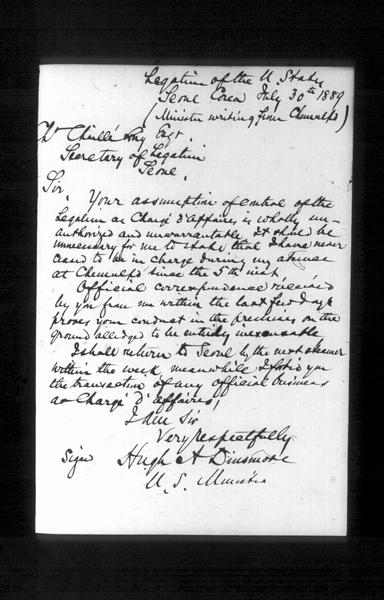 Legation of the U. States
Seoul Corea July 30th 1889
(Minister writing from Chemulpo)
Chs Chaillé Long Esqr.
Secretary of Legation
Seoul.
Sir,
Your assumption of control of the
Legation as Chargé d'Affaires is wholly un-
authorized and unwarrantable. It should be
unnecessary for me to state that I have never
ceased to be in charge during my absence
at Chemulpo since the 5th inst.
Official correspondence received
by you from me within the last few days
proves your conduct in the premises on the
ground alledged to be entirely inexcusable
I shall return to Seoul by the next steamer
within the week, meanwhile I forbid you
the transaction of any official business
as Chargé d'affaires,
I am Sir
Very respectfully
Sign Hugh A Dinsmore
U. S. Minister